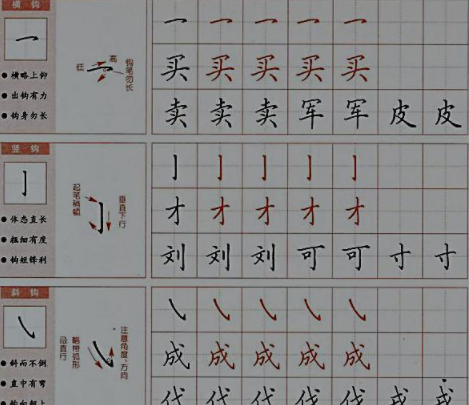 横钩
高
低
钩笔勿长
● 横略上仰
● 出钩有力
● 钩身勿长
乛 乛 乛 乛 乛
买 买 买 买 买
卖 卖 卖 军 军 皮 皮
竖钩
起笔稍顿
垂直下行
● 体态直长
● 粗细有度
● 钩短锋利
亅 亅 亅 亅 亅
才 才 才 才 才
刘 刘 刘 可 可 寸 寸
斜钩
注意角度、方向
略带弧形
● 斜而不倒
● 直中有弯
● 钩向朝上
㇂ ㇂ ㇂ ㇂ ㇂
成 成 成 成 成
代 代 代 代 代 戍 戍